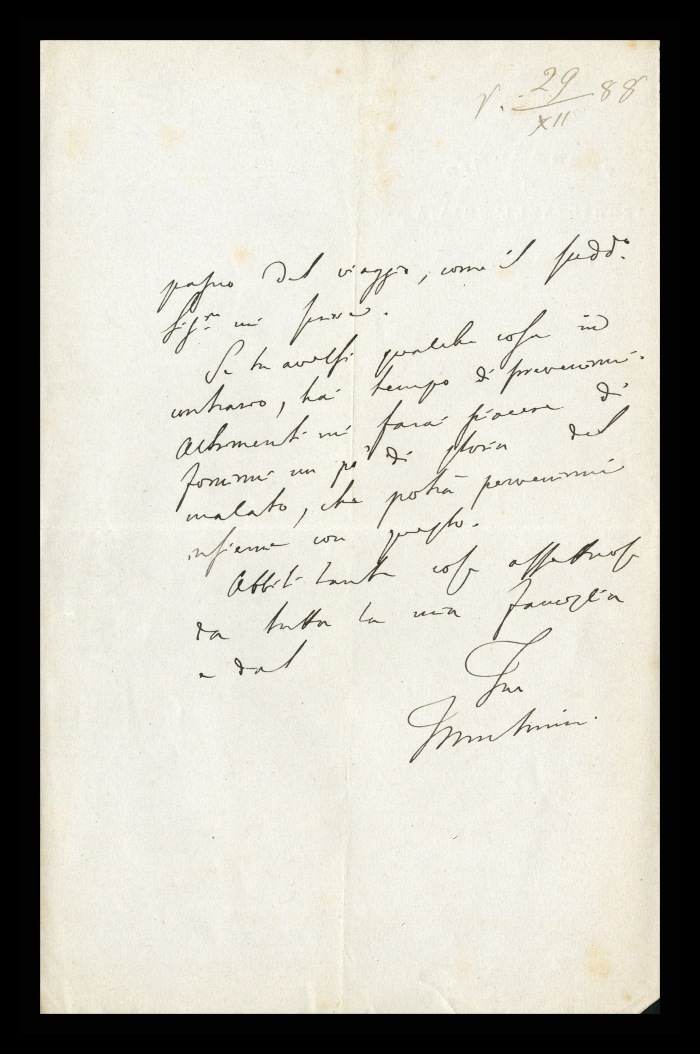 r. 29/XII 88
passo del viaggio, come il sudd.º
Sig.re mi scrive.
Se tu avessi qualche cosa in
contrario, hai tempo di prevenirmi.
Altrimenti mi farai piacere di
fornirmi un po' di storia del
malato, che potrà pervenirmi
insieme con questo.
Abbiti tante cose affettuose
da tutta la mia famiglia
e dal
Tuo